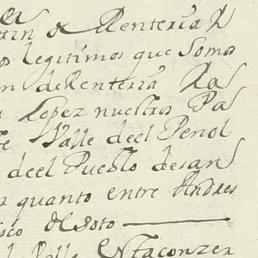 tin de Renteria
os legitimos que somos
n de Renteria
Lopez nuestros Pa
Valle deel Penol
deel Pueblo desan
z quanto entre Andres
isco de soto
Valle